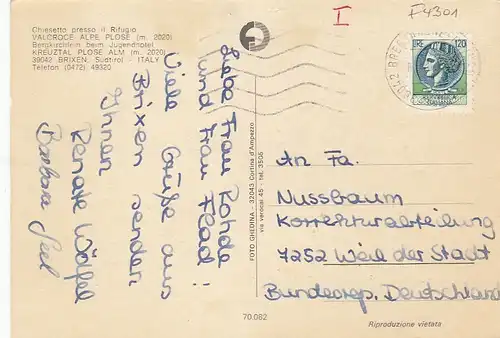 Chiesetto presso il Rifugio
VALCROCE ALPE PLOSE (m. 2020)
Bergkirchlein beim Jugendhotel
KREUZTAL PLOSE ALM (m. 2020)
39042 BRIXEN, Südtirol - ITALY
Telefon (0472) 49320
I
F4301
LIRE 120
Liebe Frau Rohde
und Frau Flad!
Viele Grüße aus
Brixen senden
Ihnen
Renate Wölfel
Barbara Seel
FOTO GHEDINA - 32043 Cortina d'Ampezzo
via verocai 45 - tel. 3506
An Fa.
Nussbaum
Korrekturabteilung
7252 Weil der Stadt
Bundesrep. Deutschland
70.082
Riproduzione vietata